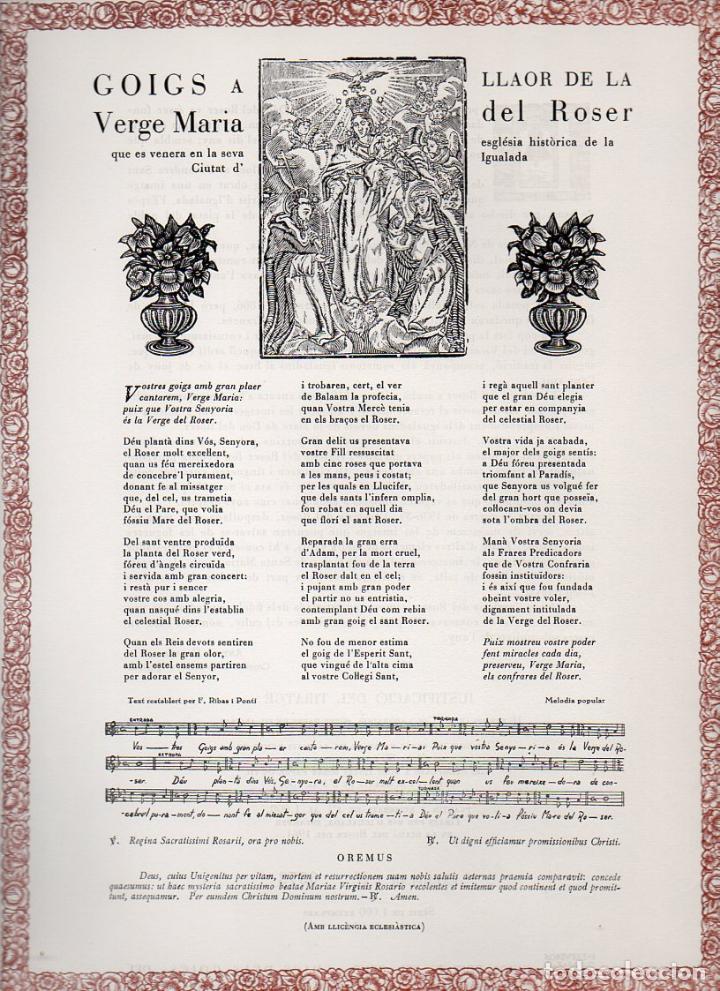 GOIGS A LLAOR DE LA
Verge Maria del Roser
que es venera en la seva església històrica de la
Ciutat d' Igualada
Vostres goigs amb gran plaer
cantarem, Verge Maria:
puix que Vostra Senyoria
és la Verge del Roser.
Déu plantà dins Vós, Senyora,
el Roser molt excel·lent,
quan us féu mereixedora
de concebre'l purament,
donant fe al missatger
que, del cel, us trametia
Déu el Pare, que volia
fóssiu Mare del Roser.
Del sant ventre produïda
la planta del Roser verd,
fóreu d'àngels circuïda
i servida amb gran concert:
i restà pur i sencer
vostre cos amb alegria,
quan nasqué dins l'establia
el celestial Roser.
Quan els Reis devots sentiren
del Roser la gran olor,
amb l'estel ensems partiren
per adorar el Senyor,
i trobaren, cert, el ver
de Balaam la profecia,
quan Vostra Mercè tenia
en els braços el Roser.
Gran delit us presentava
vostre Fill ressuscitat
amb cinc roses que portava
a les mans, peus i costat;
per les quals en Llucifer,
que dels sants l'infern omplia,
fou robat en aquell dia
que florí el sant Roser.
Reparada la gran erra
d'Adam, per la mort cruel,
trasplantat fou de la terra
el Roser dalt en el cel;
i pujant amb gran poder
el partir no us entristia,
contemplant Déu com rebia
amb gran goig el sant Roser.
No fou de menor estima
el goig de l'Esperit Sant,
que vingué de l'alta cima
al vostre Col·legi Sant,
i regà aquell sant planter
que el gran Déu elegia
per estar en companyia
del celestial Roser.
Vostra vida ja acabada,
el major dels goigs sentís:
a Déu fóreu presentada
triomfant al Paradís,
que Senyora us volgué fer
del gran hort que posseïa,
col·locant-vos on devia
sota l'ombra del Roser.
Manà Vostra Senyoria
als Frares Predicadors
que de Vostra Confraria
fossin instituïdors:
i és així que fou fundada
obeint vostre voler,
dignament intitulada
de la Verge del Roser.
Puix mostreu vostre poder
fent miracles cada dia,
preserveu, Verge Maria,
els confrares del Roser.
Text restablert per F. Ribas i Pontí Melodia popular
ENTRADA TORNADA
Vos — tres Goigs amb gran pla — er canta — rem, Verge Ma — ri — a: Puix que vostra Senyo — ri — a és la Verge del Ro-
ESTROFA
ser. Déu plan — tà dins Vós, Se — nyo — ra, el Ro — ser molt ex-cel — lent quan us féu mereixe — do — ra de con-
TORNADA
cebre'l pu-ra — ment, do — nant fe al missat — ger que del cel us trame — ti — a Déu el Pare que vo — li — a Fóssiu Mare del Ro — ser.
℣. Regina Sacratissimi Rosarii, ora pro nobis. ℟. Ut digni efficiamur promissionibus Christi.
OREMUS
Deus, cuius Unigenitus per vitam, mortem et resurrectionem suam nobis salutis aeternas praemia comparavit: concede
quaesumus: ut haec mysteria sacratissimo beatae Mariae Virginis Rosario recolentes et imitemur quod continent et quod promit-
tunt, assequamur. Per eumdem Christum Dominum nostrum. — ℟. Amen.
(Amb llicència eclesiàstica)
todocoleccion